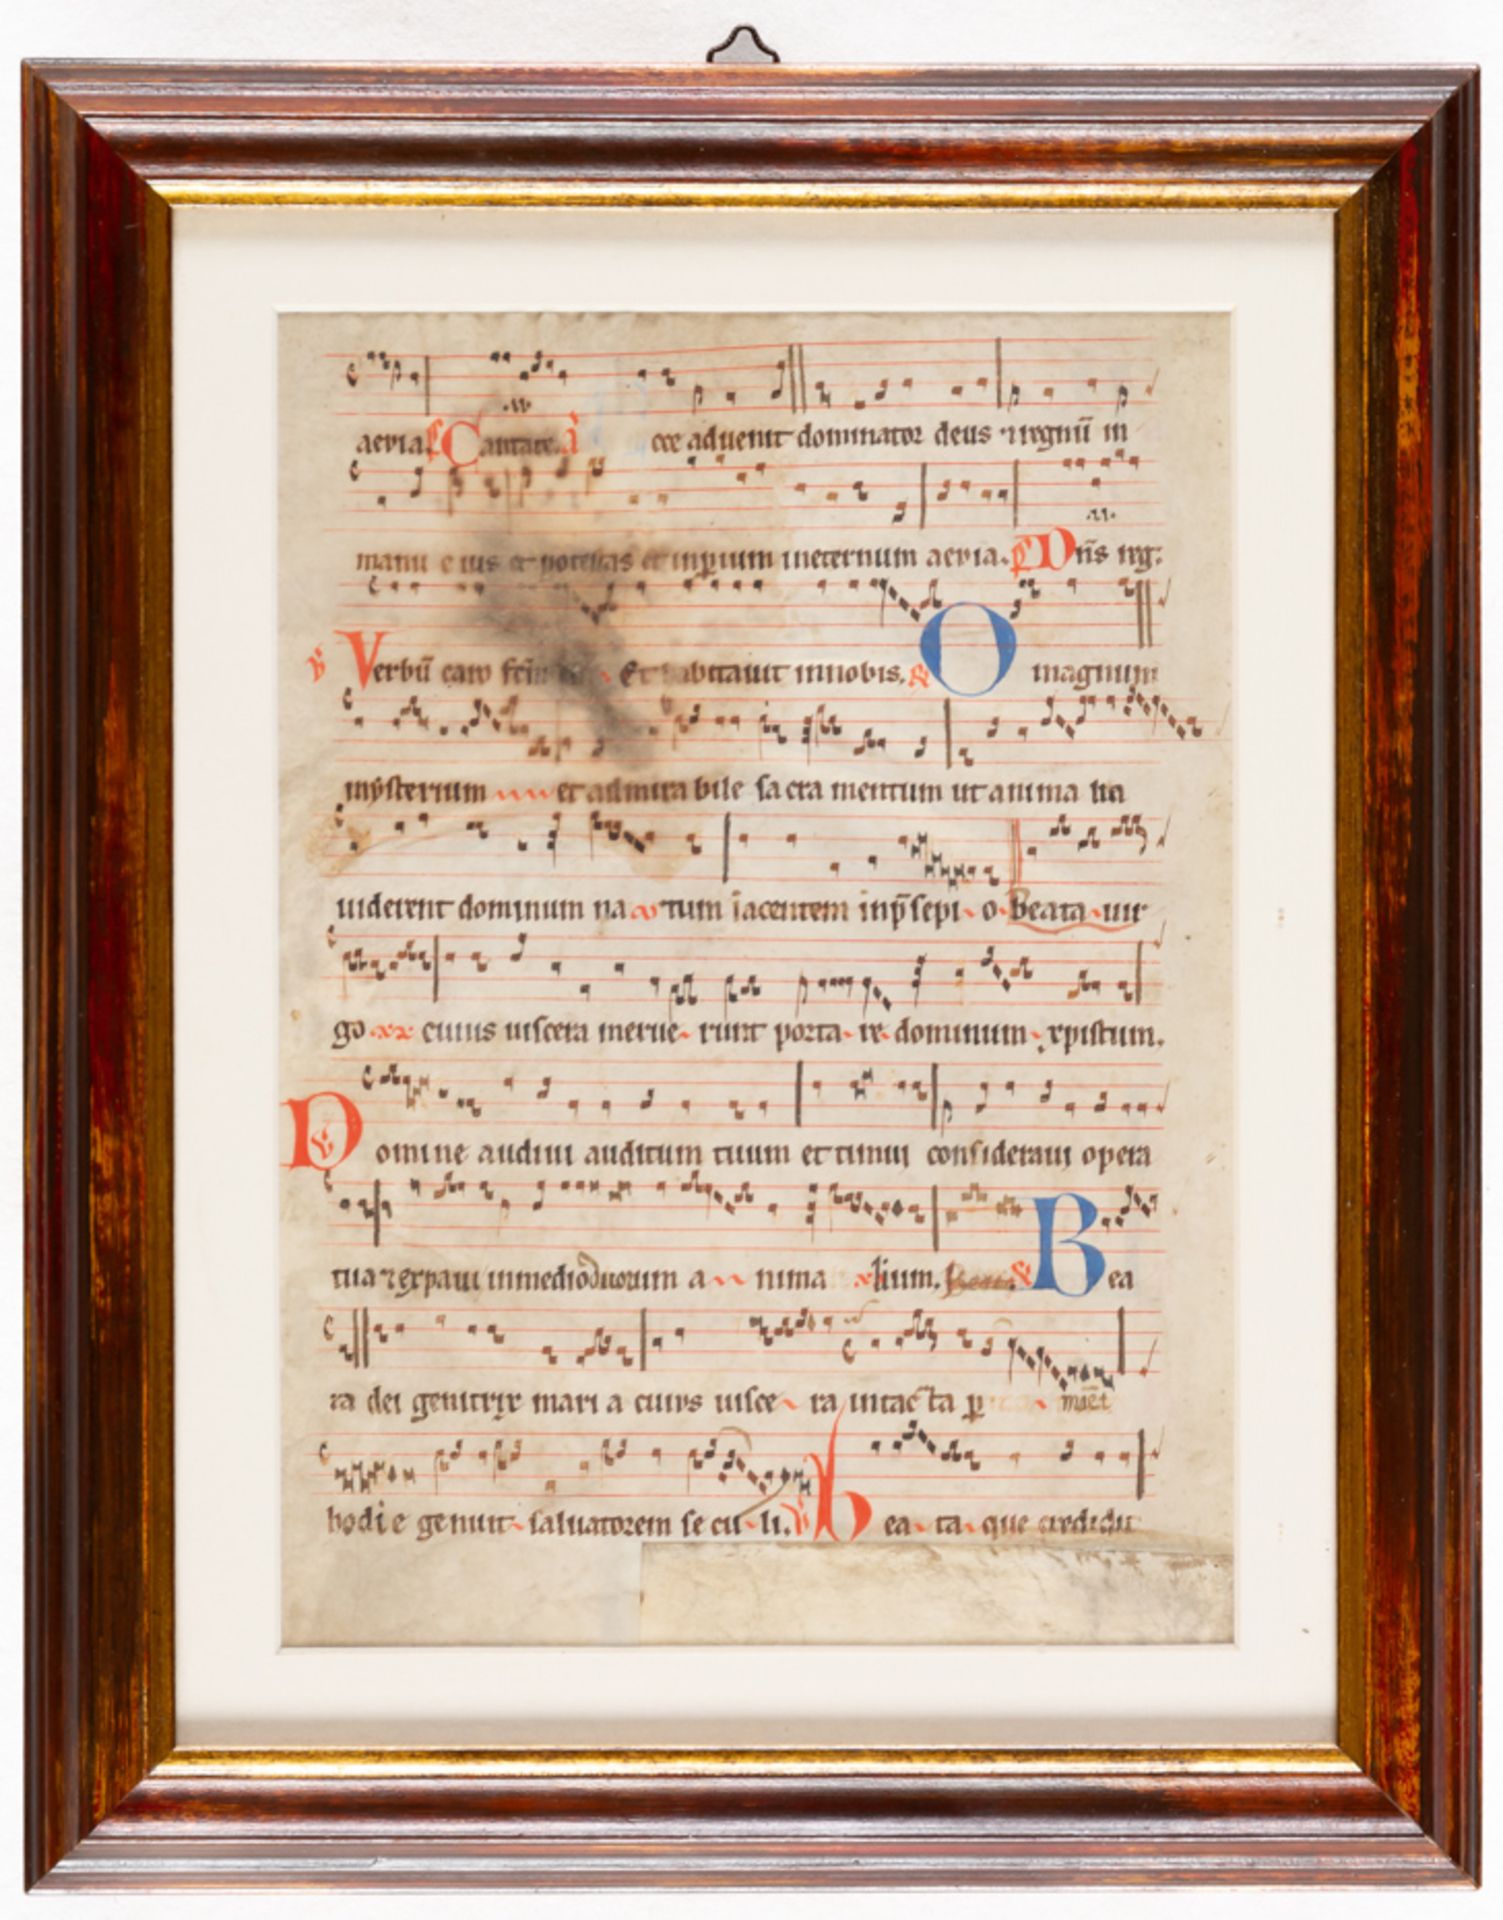 aevia. p̃ Cantate. ã cce aduenit dominator deus ⁊ regnũ in
manu e ius et potestas et inp̱ium ineternum aevia. p̃ Dñs reg.
℟ Verbũ caro fc̃m Et habitauit innobis. ℟ O magnum
mẏsterium et admira bile sa cra mentum ut anima lia
uiderent dominum na tum iacentem inp̃sepi · o · Beata uir
go cuius uiscera merue runt porta re dominum xpistum.
℣ Domine audiui auditum tuum et timui consideraui opera
tua ⁊ expaui inmedio duorum a nima lium. Beata. ℟ Bea
ta dei genitrix mari a cuius uisce ra intacta p̱ mãet
hodi e genuit saluatorem se cu li. ℣ bea ta que credidit